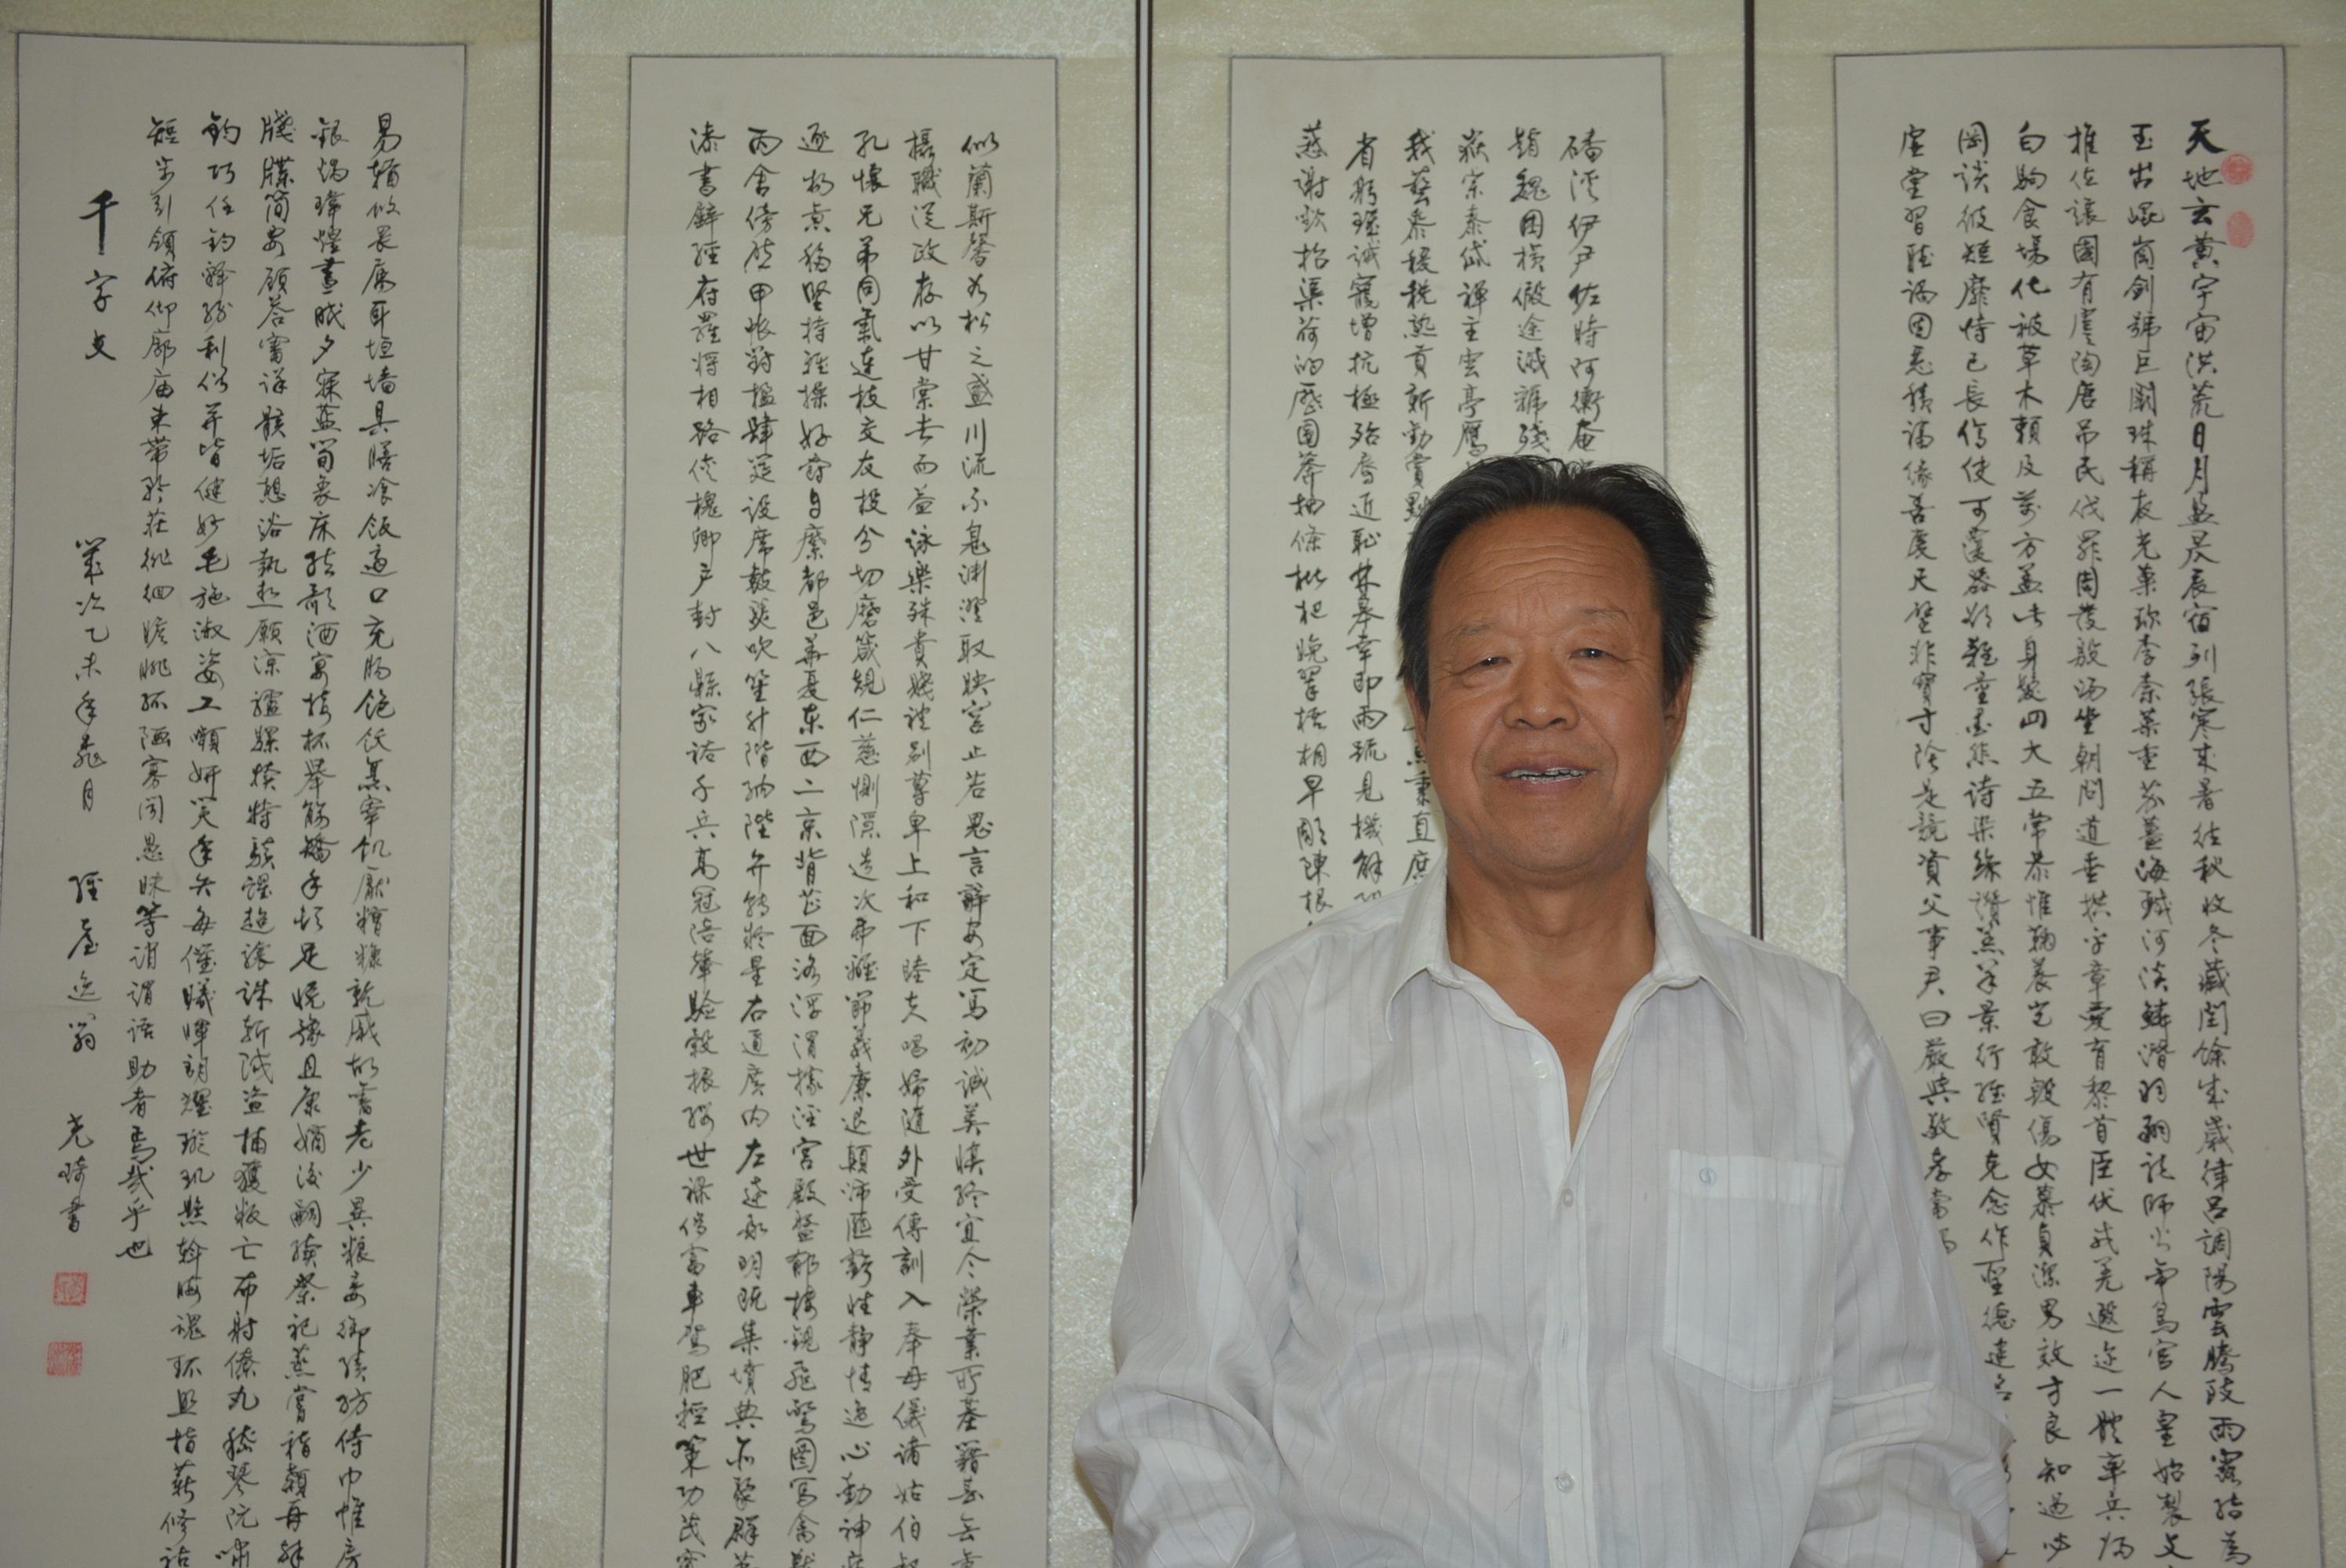 天地玄黃宇宙洪荒日月盈昃辰宿列張寒来暑往秋收冬藏閏馀成歲律呂調陽雲騰致雨露结為
玉出崐崗劍號巨闕珠稱夜光菓珍李柰菜重芥薑海鹹河淡鱗潛羽翔龍師火帝鳥官人皇始製文
推位讓國有虞陶唐吊民伐罪周發殷湯坐朝問道垂拱平章愛育黎首臣伏戎羌遐迩一體率
白駒食場化被草木賴及萬方蓋此身髮四大五常恭惟鞠養豈敢毀傷女慕貞潔男效才良知過必
罔談彼短靡恃己長信使可覆器欲難量墨悲詩染絲讚羔羊景行維賢克念作聖德建名
虛堂習聽禍因惡積福緣善慶尺璧非寶寸陰是競資父事君曰嚴與敬孝當
磻溪伊尹佐時阿衡奄
趙魏困橫假途滅虢踐
嶽宗泰岱禪主雲亭雁
我藝黍稷稅熟貢新勸賞黜
魚秉直庶
省躬譏誡寵增抗極殆辱近恥林皋幸即兩疏見機解
感謝歡招渠荷的歷園莽抽條枇杷晚翠梧桐早凋陳根
似蘭斯馨如松之盛川流不息淵澄取映容止若思言辭安定篤初誠美慎終宜令榮業所基籍甚無竟
攝職從政存以甘棠去而益詠樂殊貴賤禮別尊卑上和下睦夫唱婦隨外受傅訓入奉母儀諸姑伯叔
孔懷兄弟同氣連枝交友投分切磨箴規仁慈惻隱造次弗離節義廉退顛沛匪虧性靜情逸心動神疲
逐物意移堅持雅操好爵自縻都邑華夏东西二京背芒面洛浮渭據涇宮殿盤郁樓觀飛驚圖寫禽獸
丙舍傍啟甲帳對楹肆筵設席鼓瑟吹笙升階納陛弁轉疑星右通廣內左達承明既集墳典亦聚群英
漆書壁經府羅將相路俠槐卿戶封八縣家給千兵高冠陪輦驅轂振纓世祿侈富車駕肥輕策功茂實
易輶攸畏屬耳垣墻具膳飡飯適口充腸飽飫烹宰飢厭糟糠親戚故舊老少異糧妾御績紡侍巾帷房
銀燭煒煌晝眠夕寐藍筍象床弦歌酒宴接杯舉觴矯手頓足悅豫且康嫡後嗣續祭祀蒸嘗稽顙再拜
牋牒簡要顧答審詳骸垢想浴執熱願涼驢騾犢特駭躍超驤誅斬賊盜捕獲叛亡布射僚丸嵇琴阮嘯
鈞巧任釣釋紛利俗并皆佳妙毛施淑姿工顰妍笑年矢每催曦暉朗耀璇璣懸斡晦魄環照指薪修祜
矩步引領俯仰廊庙束帶矜莊徘徊瞻眺孤陋寡聞愚昧等誚謂語助者焉哉乎也
千字文
歲次乙未年 月 逸翁 書